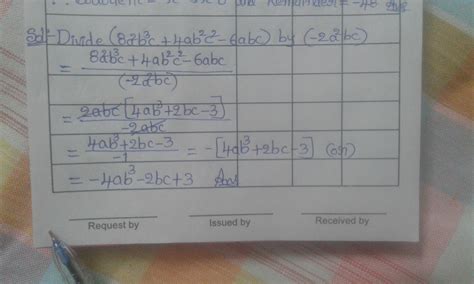 and Remainder = -48 Ans
Sol:- Divide (8a²b³c + 4ab²c² - 6abc) by (-2a²bc)
= 8a²b³c + 4ab²c² - 6abc / (-2a²bc)
= 2abc [4ab³ + 2bc - 3] / -2abc
= 4ab³ + 2bc - 3 / -1 = -[4ab³ + 2bc - 3] (or)
= -4ab³ - 2bc + 3 Ans
Request by Issued by Received by